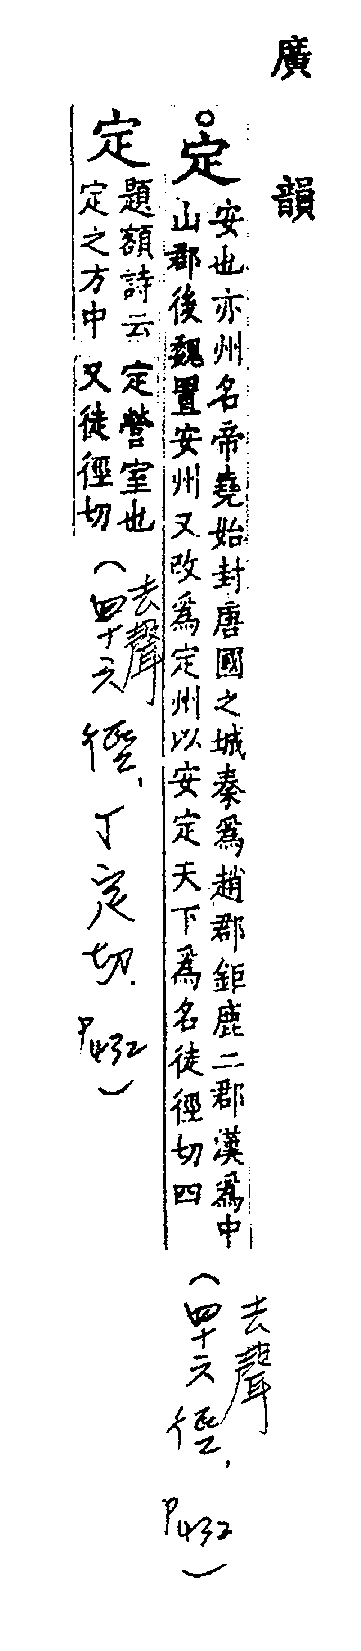 廣韻
定
安也亦州名帝堯始封唐國之城秦爲趙郡鉅鹿二郡漢爲中
山郡後魏置安州又改爲定州以安定天下爲名徒徑切四
(去聲
四十六徑,P432)
定
題額詩云定營室也
定之方中又徒徑切
(去聲
四十六徑,丁定切.P432)